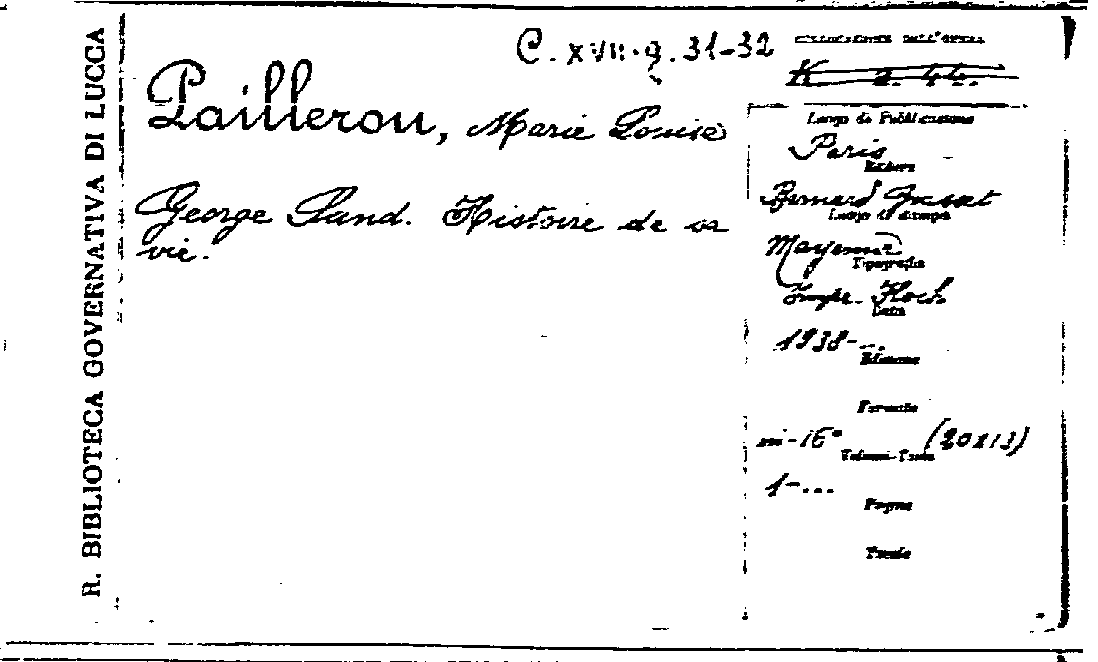 R. BIBLIOTECA GOVERNATIVA DI LUCCA
C. XVII. g. 31-32
COLLOCAZIONE DELL'OPERA
K a. 44.
Pailleron, Marie Louise
George Sand. Histoire de sa
vie.
Luogo di Pubblicazione
Paris
Editore
Bernard Grasset
Luogo di stampa
Mayenne
Tipografia
Impr. Floch
Data
1938-...
Edizione
Formato
in-16° (20x13)
Volumi-Tomi
1-...
Pagine
Tavole